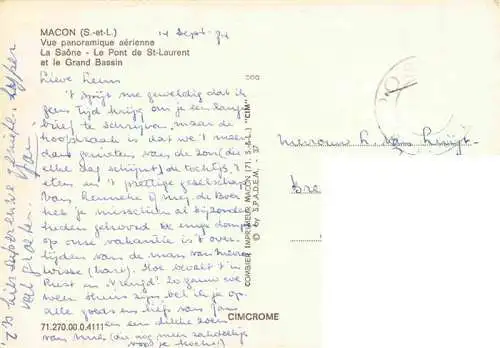 MACON (S.-et-L.)
Vue panoramique aérienne
La Saône - Le Pont de St-Laurent
et le Grand Bassin
14 Sept. 74
Lieve Leun
't spijt me geweldig dat ik
geen tijd krijg om je een lange
brief te schrijven, maar de
hoofdzaak is dat we 't meest
dan genieten van de zon (die
elke dag schijnt) de tochtjes, 't
eten en 't prettige gezelschap
van Hanneke & mej. de Boer
heb je misschien al bijzonder-
heden gehoord. De enige domper
op onze vakantie is 't over-
lijden van de man van
(hart). Hoe bevalt 't in
Rust en Vreugd? Zo gauw we
weer thuis zijn, bel ik je op.
alle goeds en liefs van Jan
en een dikke zoen
van mies (die nog meer zakdoekjes
voor je kocht!)
't Is hier super
veel groeten. Jan.
Mevrouw L.
Bre
COMBIER IMPRIMEUR MACON (71. S.-&-L.) "CIM"
© by S.P.A.D.E.M. - 37
CIMCROME
71.270.00.0.4111